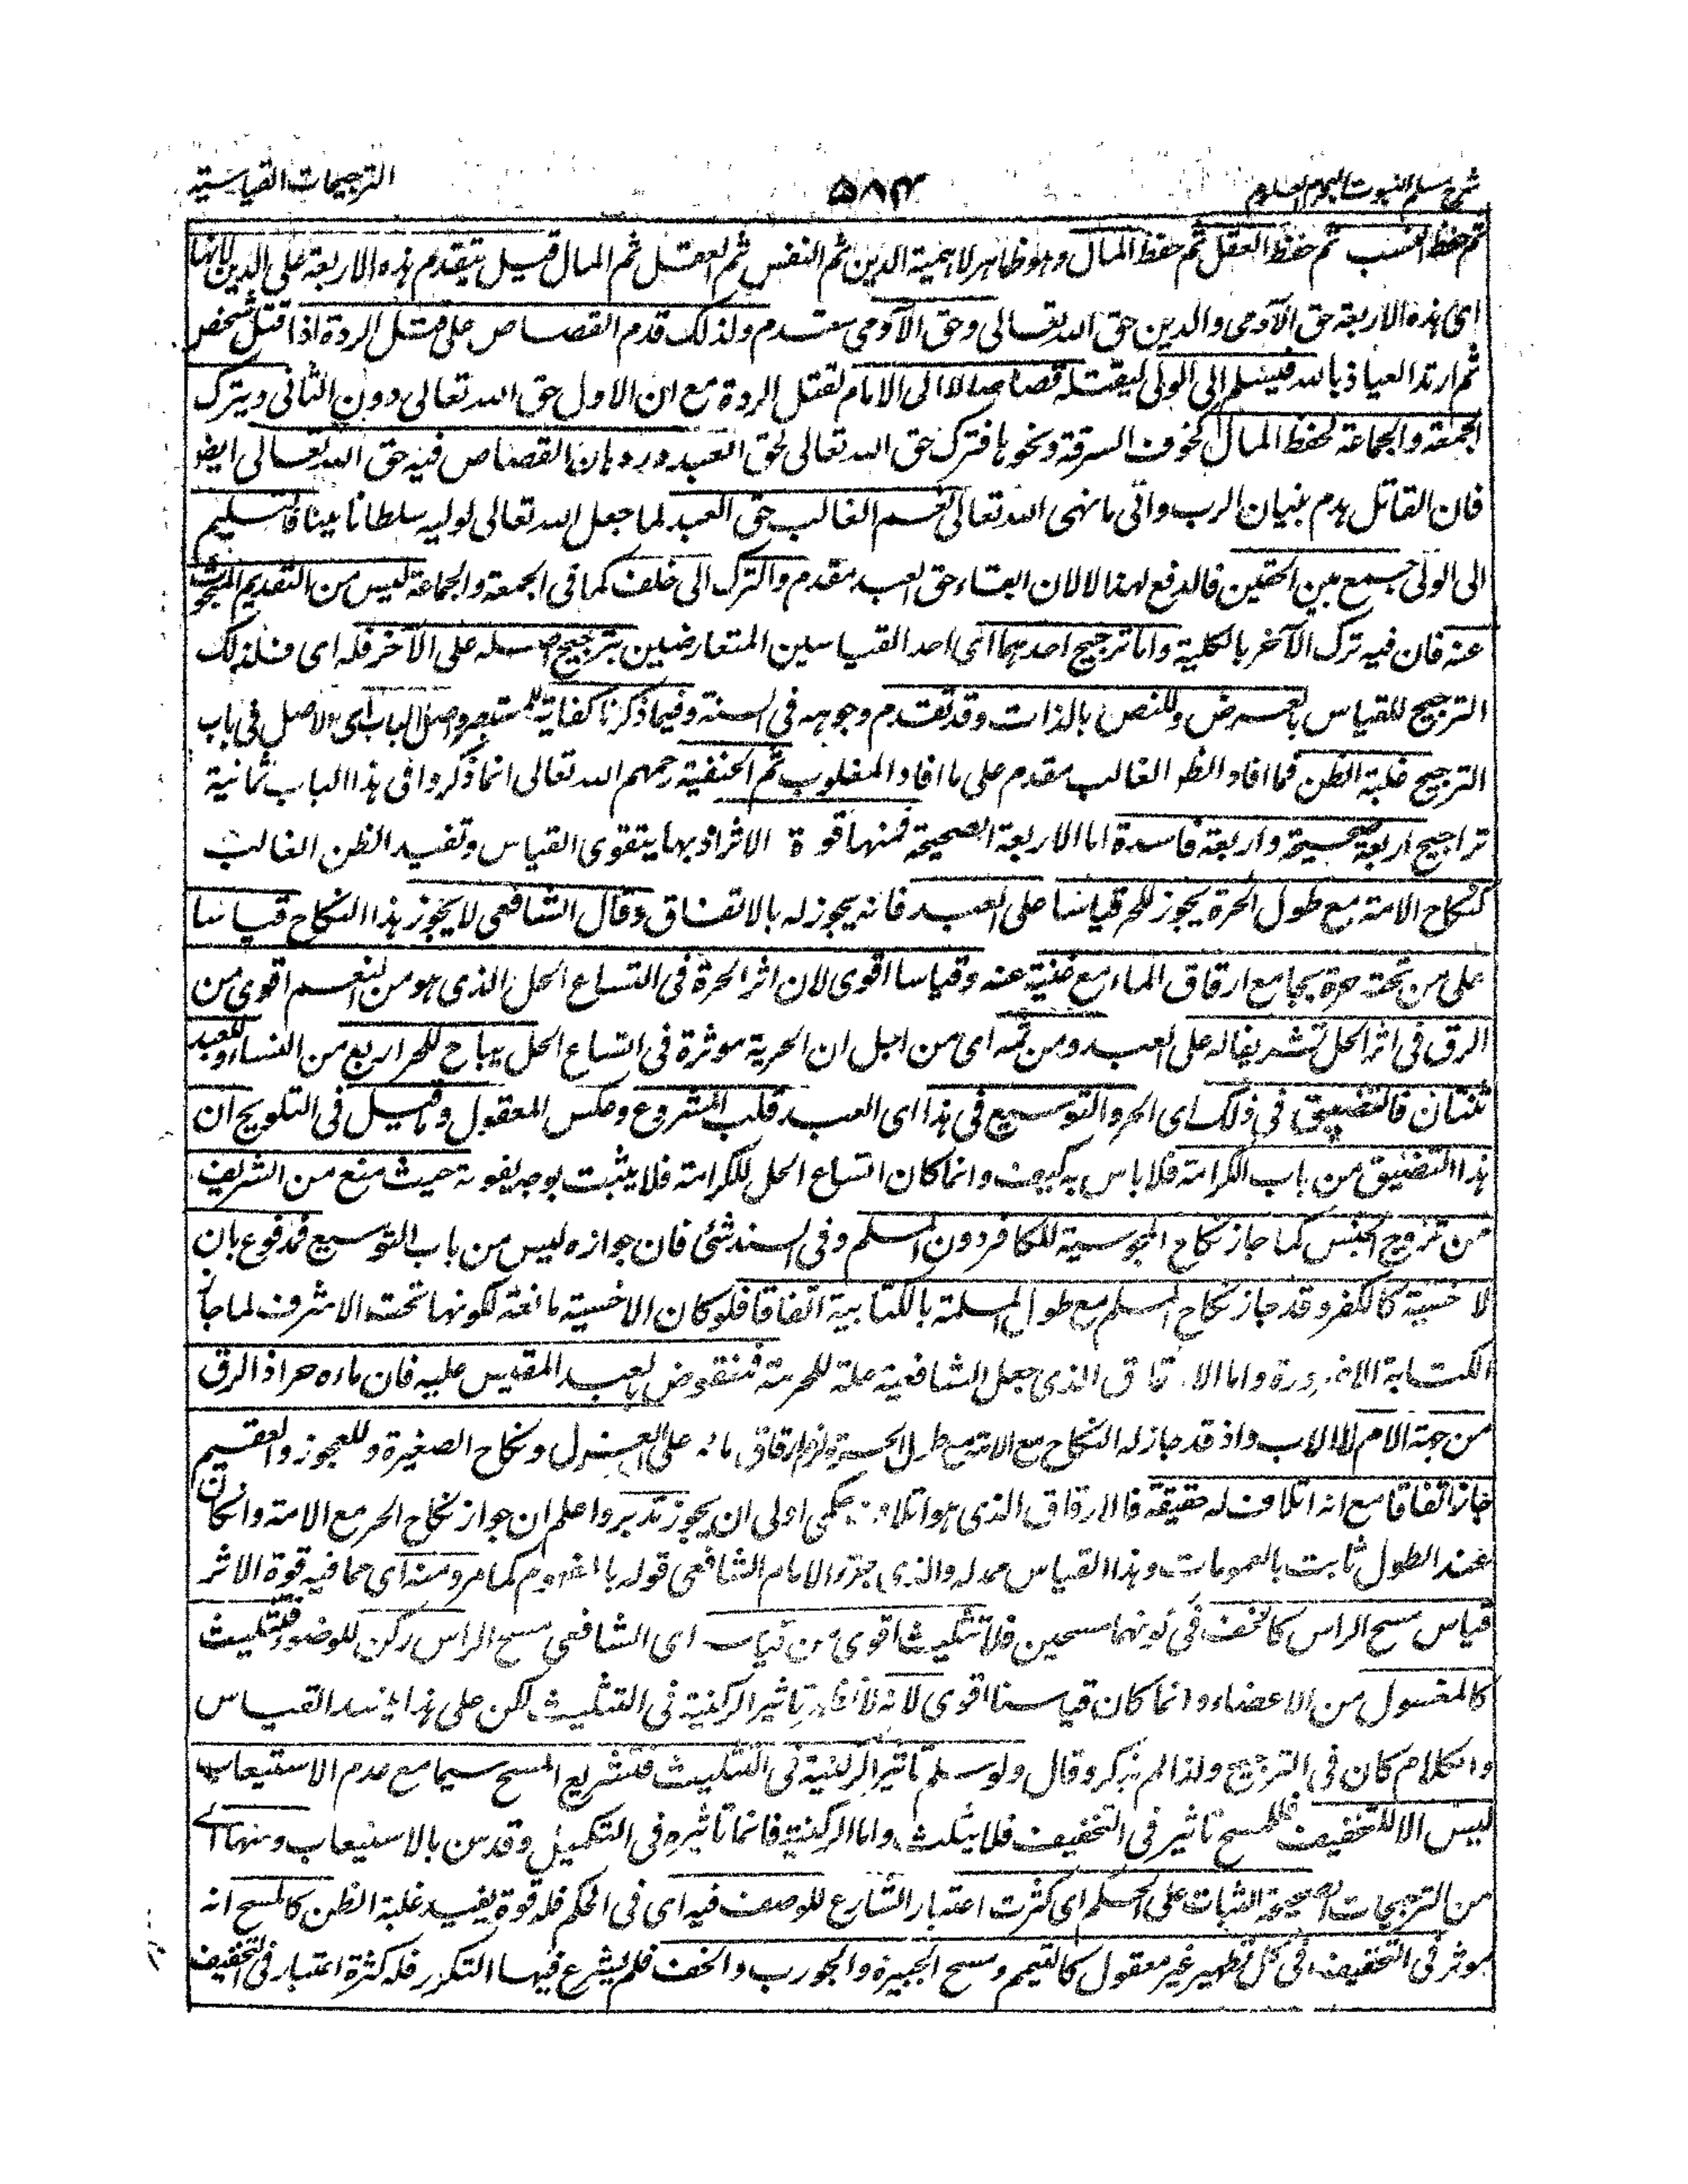 شرح مسلم الثبوت لبحر العلوم
۵۸۴
الترجيحات القياسية
ثم حفظ النسب ثم حفظ العقل ثم حفظ المال وهو ظاهر لاهمية الدين ثم النفس ثم العقل ثم المال قيل بتقدم هذه الاربعة على الدين لانها
اى هذه الاربعة حق الآدمى والدين حق الله تعالى وحق الآدمى مقدم ولذلك قدم القصاص على قتل الردة اذا قتل شخص
ثم ارتد العياذ بالله فيسلم الى الولى ليقتله قصاصا لا الى الامام لقتل الردة مع ان الاول حق الله تعالى دون الثانى ويترك
الجمعة والجماعة لحفظ المال لخوف السرقة ونحوها فترك حق الله تعالى لحق العبد ورد بان القصاص فيه حق الله تعالى ايضا
فان القاتل هدم بنيان الرب واتى ما نهى الله تعالى نعم الغالب حق العبد لما جعل الله تعالى لوليه سلطانا بينا فالتسليم
الى الولى جمع بين الحقين فالدفع لهذا لا لان ابقاء حق العبد مقدم والترك الى خلف كما فى الجمعة والجماعة ليس من التقديم المبحوث
عنه فان فيه ترك الآخر بالكلية واما ترجيح احدهما اى احد القياسين المتعارضين بترجيح اصله على الآخر فله اى فلذلك
الترجيح للقياس بالعرض وللنص بالذات وقد تقدم وجوهه فى السنة وفيما ذكرنا كفاية للمستبصر واصل الباب اى الاصل فى باب
الترجيح غلبة الظن فما افاد الظن الغالب مقدم على ما افاد المغلوب ثم الحنفية رحمهم الله تعالى انما ذكروا فى هذا الباب ثمانية
تراجيح اربعة صحيحة واربعة فاسدة اما الاربعة الصحيحة فمنها قوة الاثر اذ بها يتقوى القياس وتفيد الظن الغالب
كنكاح الامة مع طول الحرة يجوز للحر قياسا على العبد فانه يجوز له بالاتفاق وقال الشافعى لا يجوز هذا النكاح قياسا
على من تحته حرة بجامع ارقاق الماء مع غنية عنه وقياسا اقوى لان اثر الحرة فى اتساع الحل الذى هو من النعم اقوى من
الرق فى اثر الحل تشريفا له على العبد ومن ثمه اى من اجل ان الحرية موثرة فى اتساع الحل يباح للحر اربع من النساء وللعبد
ثنتان فالتضييق فى ذلك اى الحر والتوسيع فى هذا اى العبد قلب المشروع وعكس المعقول وما قيل فى التلويح ان
هذا التضييق من باب الكرامة فلا باس به كيف وانما كان اتساع الحل للكرامة فلا يثبت بوجه يفوته حيث منع من الشريف
من تزوج الخسيس كما جاز نكاح المجوسية للكافر دون المسلم وفى السند شئ فان جوازه ليس من باب التوسيع فمدفوع بان
لا خسية كالكفر وقد جاز نكاح المسلم مع طول المسلمة بالكتابية اتفاقا فلو كان الاخسية مانعة لكونها تحت الاشرف لما جاز
الكتابة الا ضرورة واما الا قاق الذى جعل الشافعية علة للحرمة فمنقوض بالعبد المقيس عليه فان ماءه حر اذ الرق
من جهة الام لا الاب واذ قد جاز له النكاح مع الامة مع طول الحرة ولزم ارقاق مائه على العزل ونكاح الصغيرة وللعجوز والعقيم
جاز اتفاقا مع انه اتلاف له حقيقة فالارقاق الذى هو اتلاف حكمى اولى ان يجوز تدبر واعلم ان جواز نكاح الحر مع الامة وان كان
عند الطول ثابت بالعمومات وهذا القياس معدله والذى جره الامام الشافعى قوله بالمفهوم كما مر ومنه اى مما فيه قوة الاثر
قياس مسح الراس كالخف فى كونهما مسحين فلا تثليث اقوى من قياسه اى الشافعى مسح الراس ركن للوضوء فتثليث
كالمغسول من الاعضاء وانما كان قياسنا اقوى لانه لا تاثير الركنية فى التثليث لكن على هذا يفسد القياس
والكلام كان فى الترجيح ولذا لم يذكر وقال ولو سلم تاثير الركنية فى التثليث فتشريع المسح سيما مع عدم الاستيعاب
ليس الا للتخفيف فللمسح تاثير فى التخفيف فلا يثلث واما الركنية فانما تاثيره فى التكميل وقد سن بالاستيعاب ومنها اى
من الترجيحات الصحيحة الثبات على الحكم اى كثرت اعتبار الشارع للوصف فيه اى فى الحكم فله قوة يفيد غلبة الظن كالمسح انه
موثر فى التخفيف فى كل تطهير غير معقول كالتيمم ومسح الجبيرة والجورب والخف فلم يشرع فيها التكرر فله كثرة اعتبار فى التخفيف